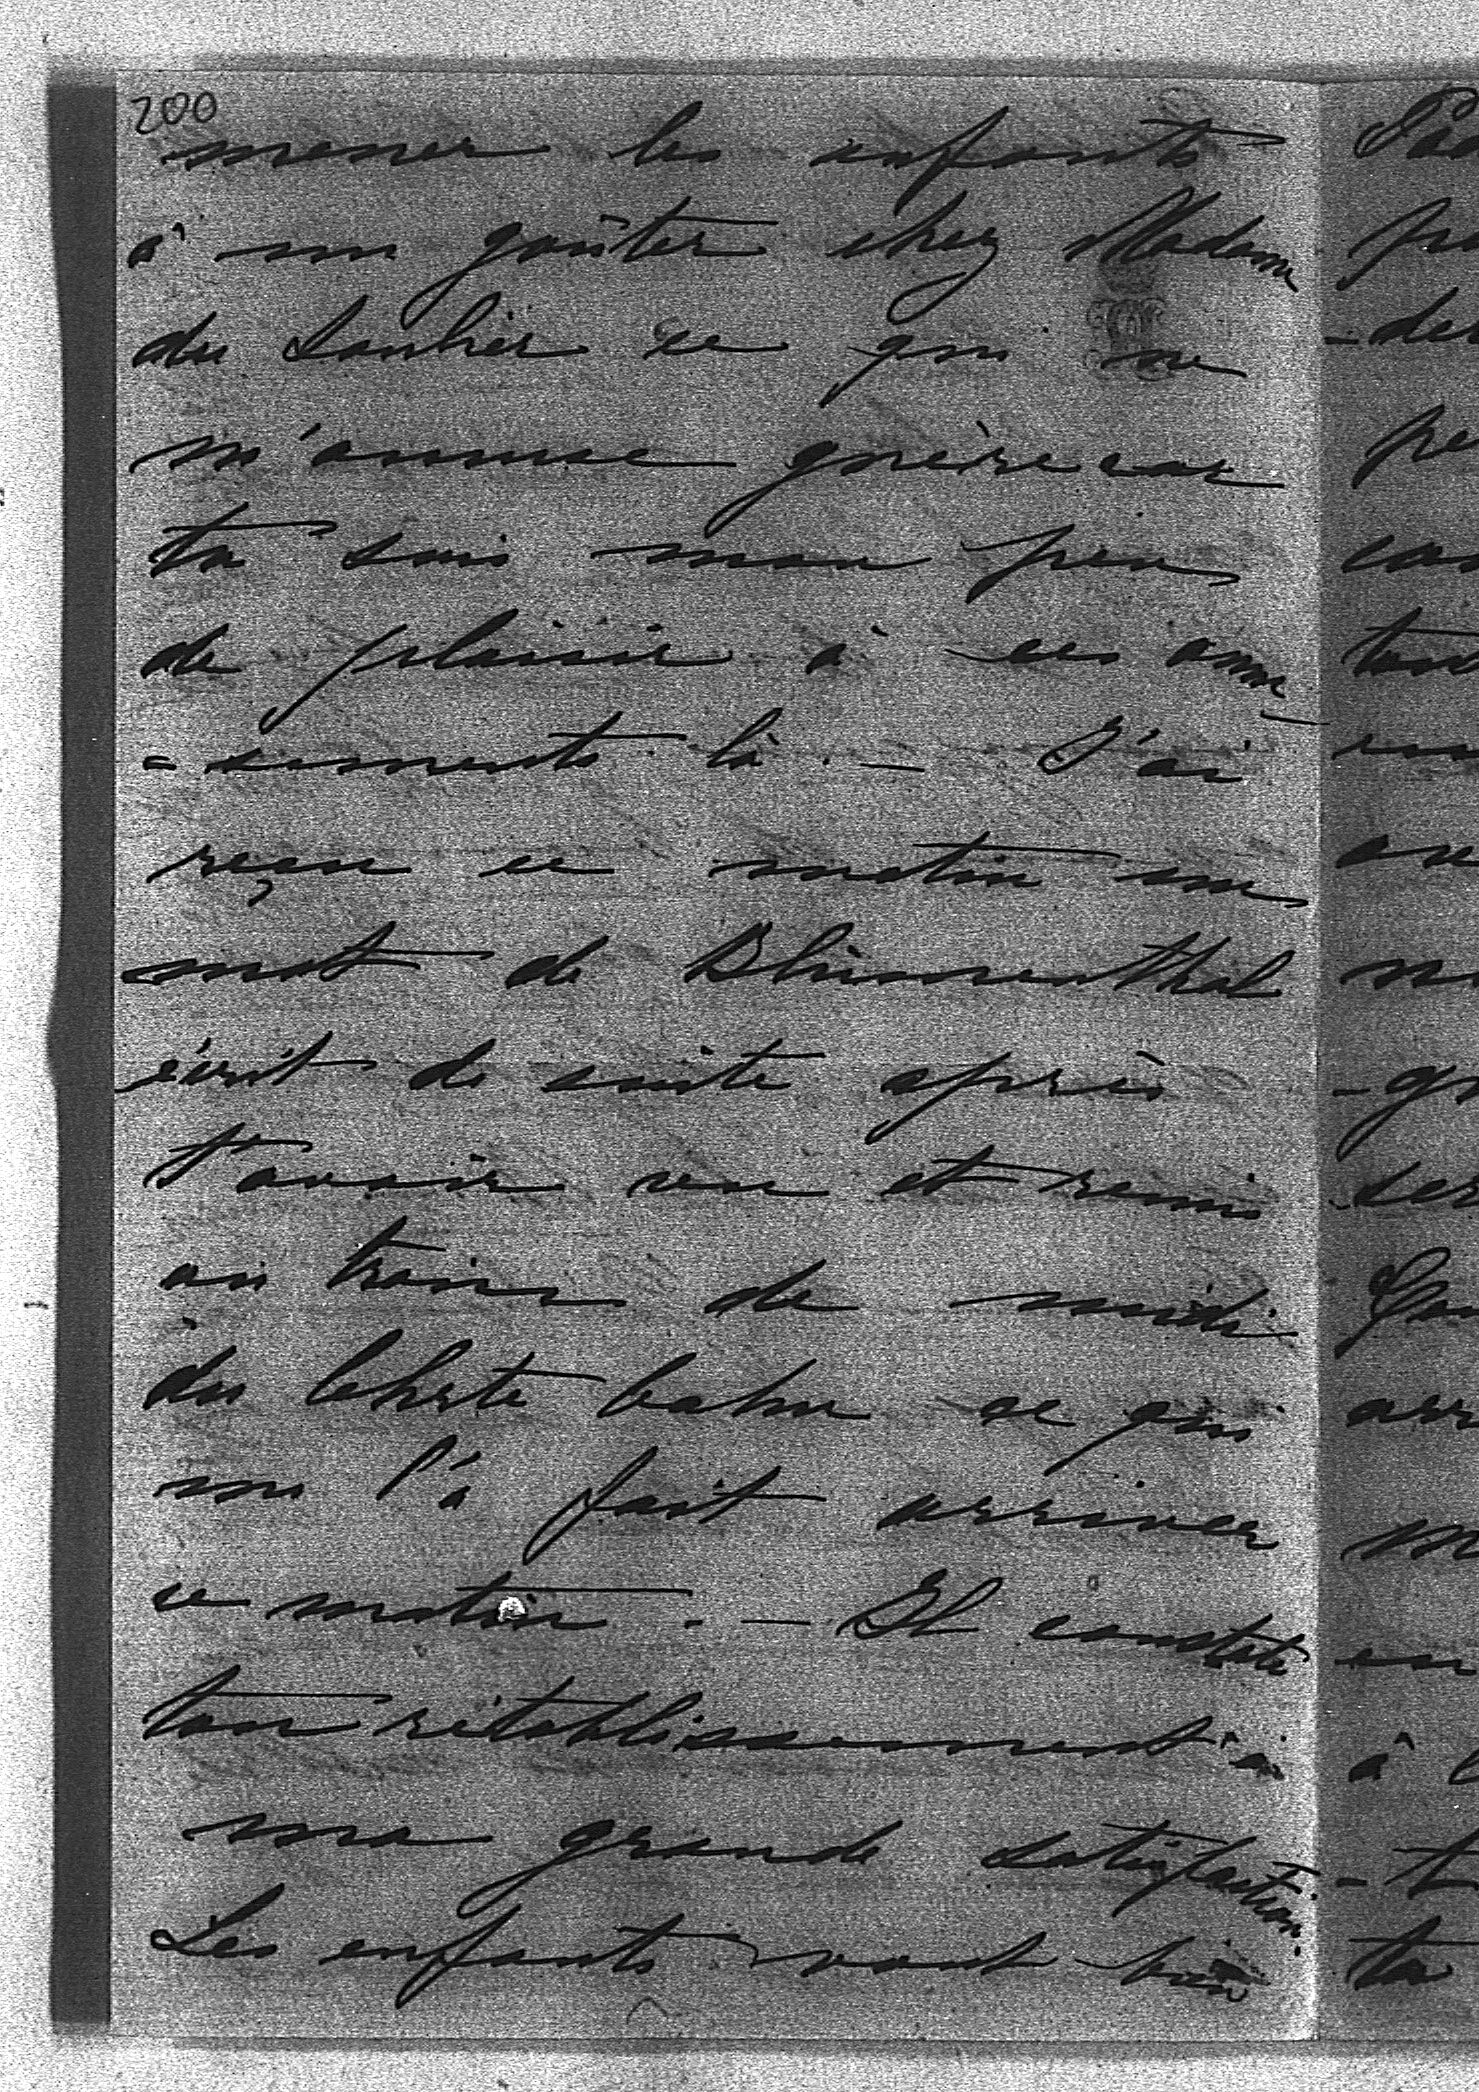 200
mener les enfants
à un goûter chez Madame
du ce qui ne
m'amuse guère car
tu sais mon peu
de plaisir à ces amu
- sements là. — J'ai
reçu ce matin un
mot de Blumenthal
écrit de suite après
t'avoir vu et remis
au train de midi
du Lehrte bahn ce qui
me l'a fait arriver
ce matin. — Il constate
ton rétablissement à
ma grande satisfaction.
Les enfants vont bien